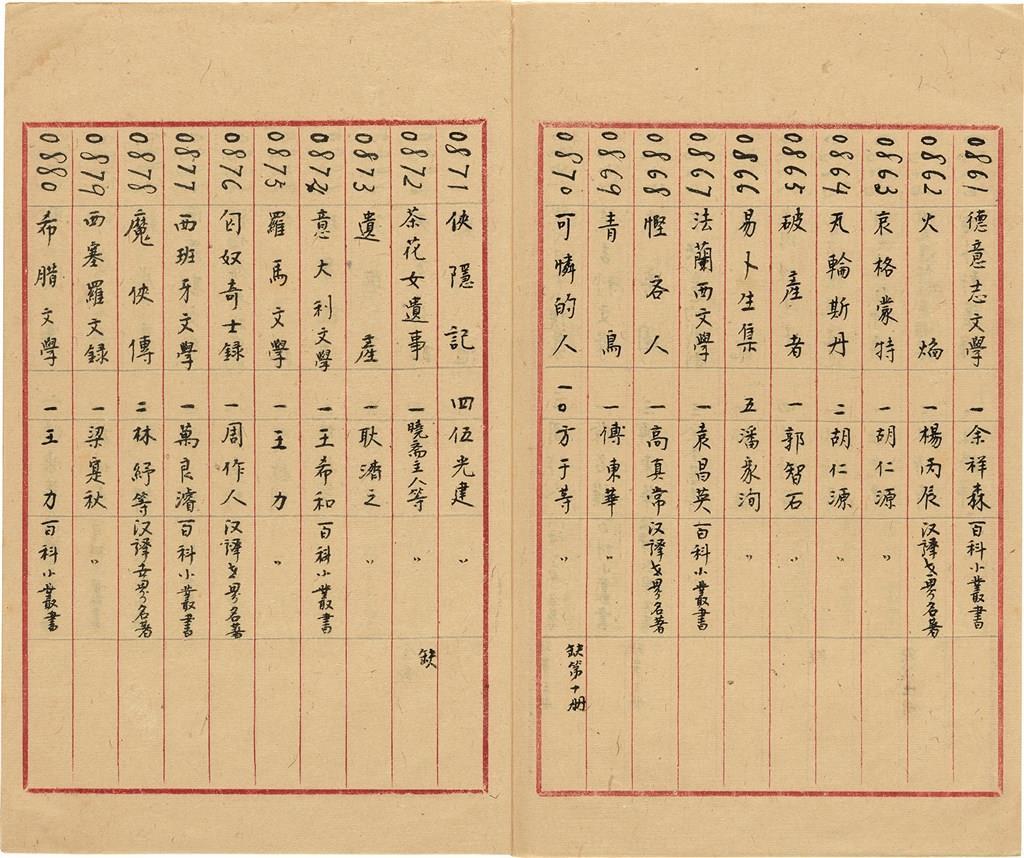 0861 德意志文學 一 余祥森 百科小叢書
0862 火焰 一 楊丙辰 汉譯世界名著
0863 哀格蒙特 一 胡仁源 〃
0864 瓦輪斯丹 二 胡仁源 〃
0865 破產者 一 郭智石 〃
0866 易卜生集 五 潘家洵 〃
0867 法蘭西文學 一 袁昌英 百科小叢書
0868 慳吝人 一 高真常 汉譯世界名著
0869 青鳥 一 傅東華 〃
0870 可憐的人 一〇 方于等 〃 缺第十册
0871 俠隱記 四 伍光建 〃
0872 茶花女遺事 一 曉斋主人等 〃 缺
0873 遺產 一 耿濟之 〃
0874 意大利文學 一 王希和 百科小叢書
0875 羅馬文學 一 王力 〃
0876 匈奴奇士録 一 周作人 汉譯世界名著
0877 西班牙文學 一 萬良濬 百科小叢書
0878 魔俠傳 二 林紓等 汉譯世界名著
0879 西塞羅文録 一 梁寔秋 〃
0880 希腊文學 一 王力 百科小叢書